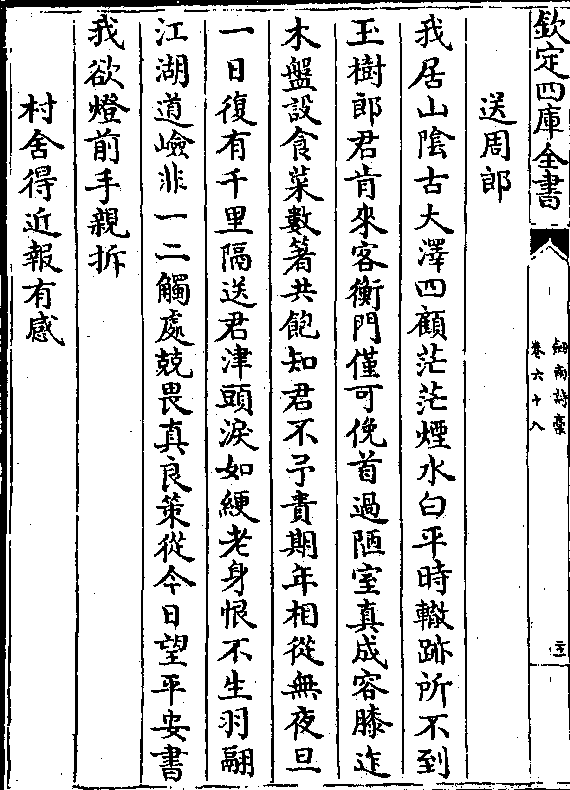 欽定四庫全書
劍南詩藁
卷六十八
送周郎
我居山陰古大澤四顧茫茫煙水白平時轍跡所不到
玉樹郎君肯來客衡門僅可俛首過陋室真成容膝迮
木盤設食菜數著共飽知君不予責期年相從無夜旦
一日復有千里隔送君津頭淚如綆老身恨不生羽翮
江湖道嶮非一二觸處兢畏真良策從今日望平安書
我欲燈前手親拆
村舍得近報有感